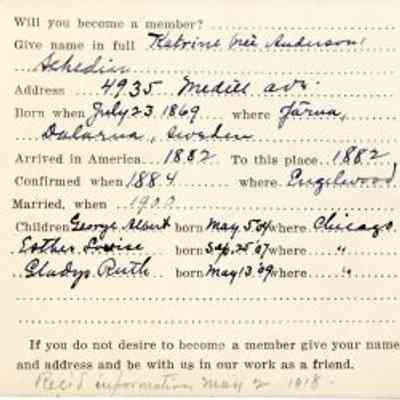 Will you become a member?
Give name in full Katrine née Anderson
Schedin
Address 4935 Medill ave
Born when July 23, 1869 where Järna,
Dalarna, Sweden
Arrived in America 1882 To this place 1882
Confirmed when 1884 where Englewood
Married, when 1900
Children George Albert born May 5 '04 where Chicago.
Esther Louise born Sep. 25 '07 where "
Gladys Ruth born May 13 '09 where "
If you do not desire to become a member give your name
and address and be with us in our work as a friend.
Rec'd information May 2 1918.